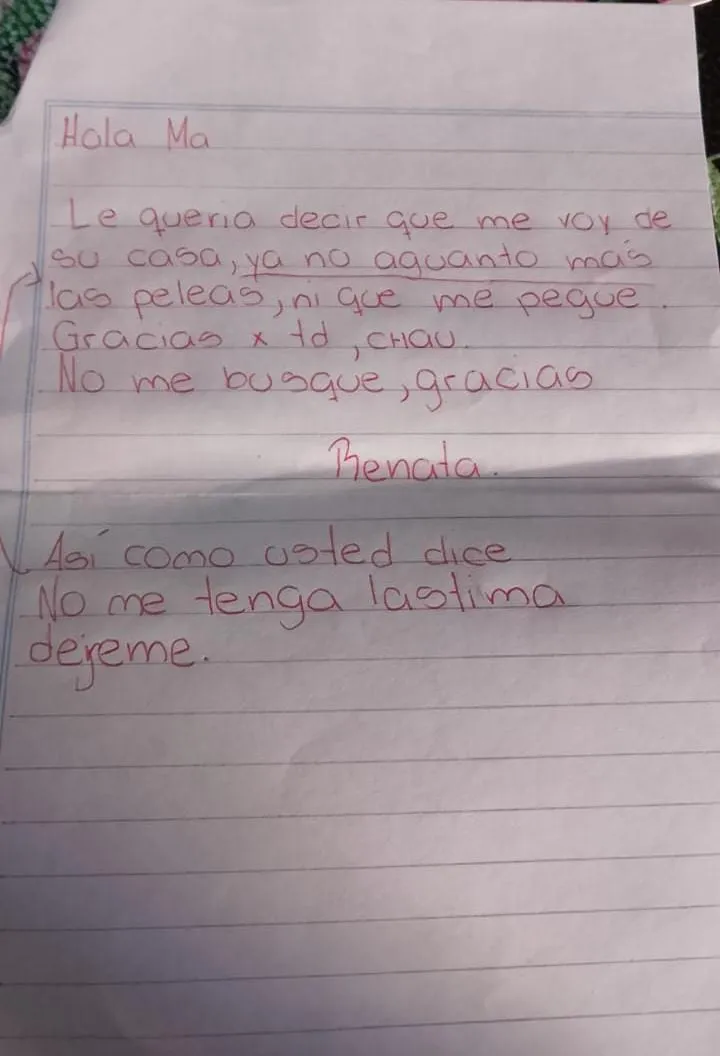 Hola Ma
Le queria decir que me voy de
su casa, ya no aguanto más
las peleas, ni que me pegue.
Gracias x td, CHAU.
No me busque, gracias
Renata.
Así como usted dice
No me tenga lastima
dejeme.